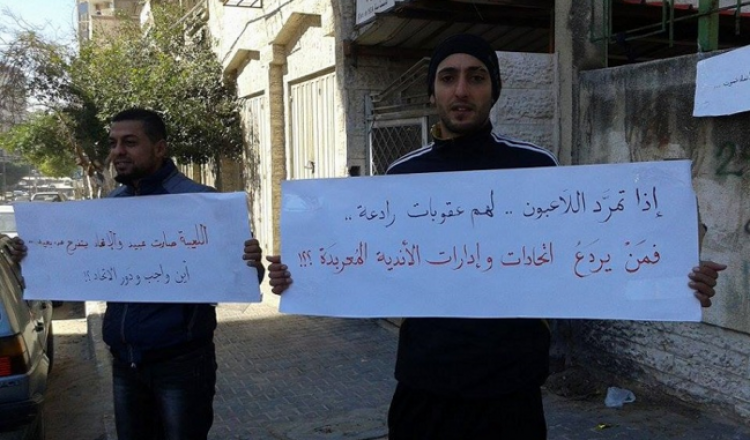 إذا تمرَّد اللاعبون .. لهم عقوبات رادعة ..
فمَنْ يردَعُ اتحادات وإدارات الأندية المُعربِدَة ؟؟!!
اللعيبة صارت عبيد والاتحاد بتفرج من بعيد
أين واجب ودور الاتحاد؟!